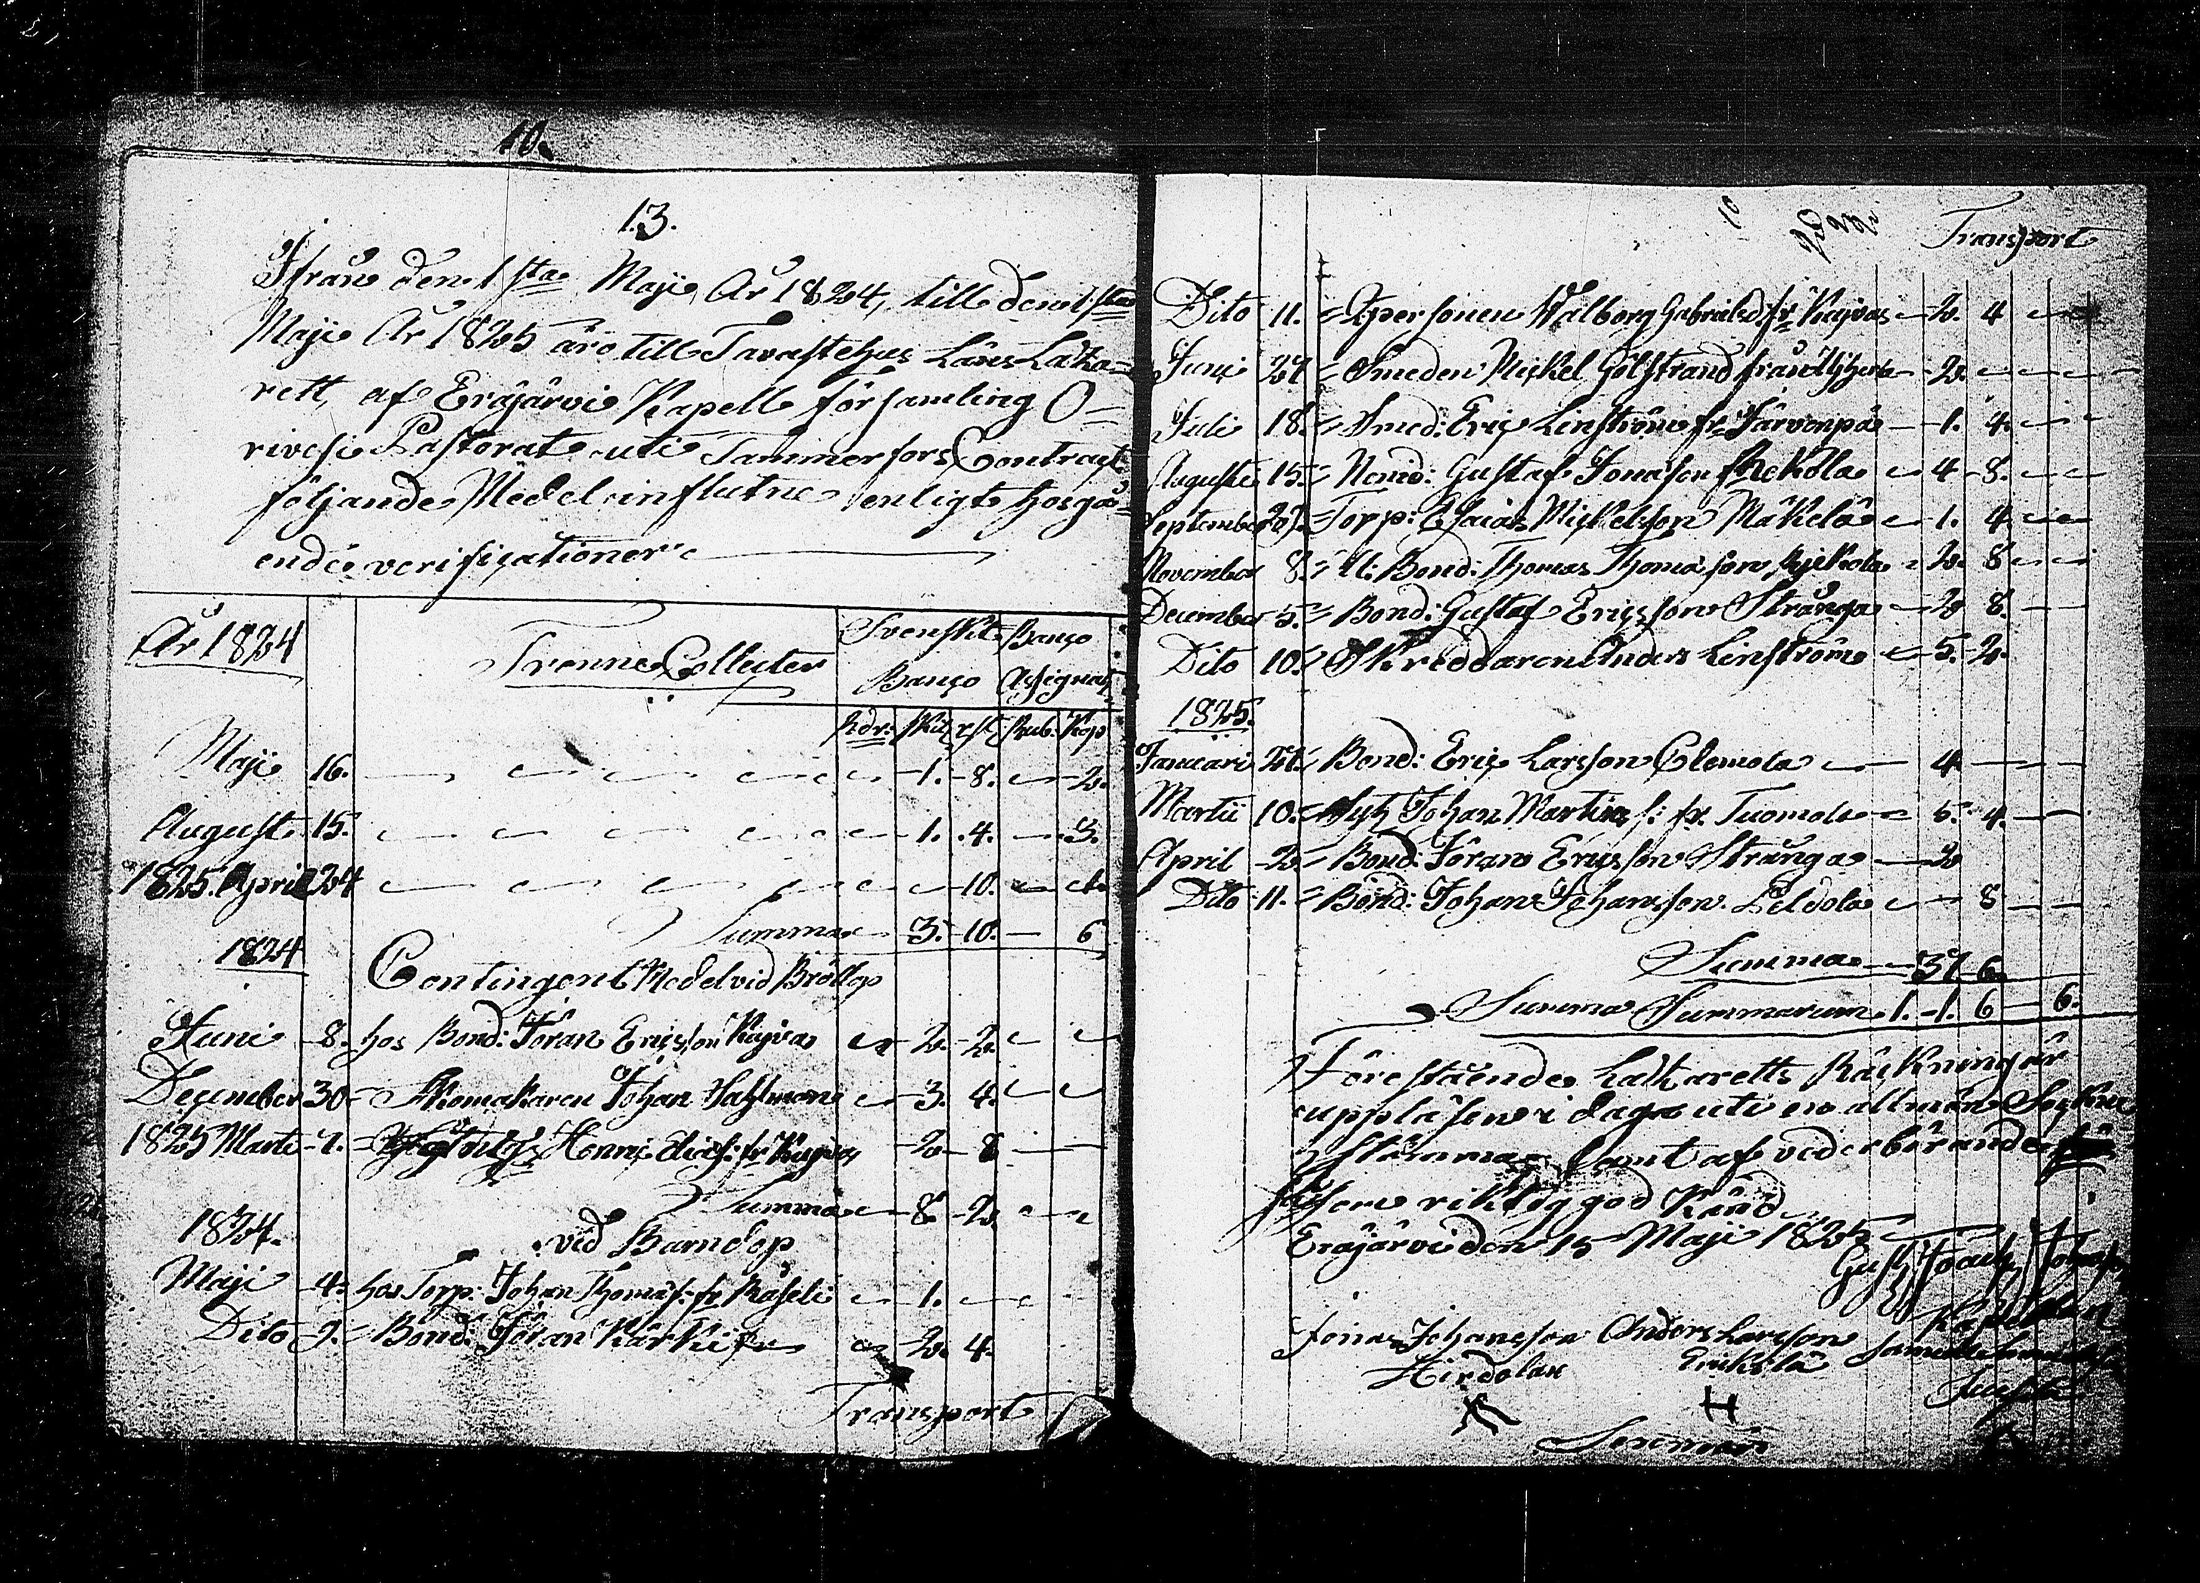 10.
13.
Ifrån den 1sta Maji År 1824, till den 1sta
Maji År 1825 äro till Tavastehus Läns Latza-
rett, af Eräjärvi Kapell församling O-
rivesi Pastorat uti Tammerfors Contract
följande Medel influtne enligt hosgå-
ende verificationer
År 1824 Trenne Collecter Svenskt Banco
Banco Assignat:
Rdr: sk: rst: Rub: Kop
Maji 16. 1. 8. 2.
August 15. 1. 4. 3.
1825. April 24 10. 1.
Summa 3. 10. 6
1824 Contingent Medel vid Bröllop
Juni 8. hos Bond: Jöran Ericsson Kujvas 2. 2.
December 30 Skomakaren Johan Sahlman 3. 4.
1825 Marti 1. Henric fr Kujvas 2 8
Summa 8. 2.
1824. vid Barndop
Maji 4. hos Torp: Johan Thomas: fr 1.
Dito 9. Bond: Jöran Kärki 2. 4.
Transport
10
Transport
Dito 11. Qpersonen Walborg Gabrielsd: fr Kujvas 2. 4
Juni 27 Smeden Mickel från 2.
Juli 18. Smed: Eric Linström fr: Järvenpä 1. 4.
Augusti 15. Nemd: Gustaf Jonasson 4 8.
September Torp: Esaias Mickelsson Mäkelä 1. 4
November 8. U: Bond: Thomas Thomasson 2. 8
December 5. Bond: Gustaf Ericsson Strånga 2 8.
Dito 10. Skreddaren Anders Linström 5. 2.
1825.
Januari Bond: Eric Larsson Clemola 4
Martii 10. Johan Martins: fr. Tuomala 5. 4.
April 2 Bond: Jöran Ericsson Strånga 2
Dito 11. Bond: Johan Johansson 8
Summa 37 6.
Summa Summarum 1. 1. 6 6.
Förestående Latzaretts Räkning är
uppläsen i dag uti en allmän Sockne
stämma samt af vederbörande
såsom riktig god känd
Eräjärvi den 15 Maji 1825
Jonas Johansson Anders Larsson
Hirdolan Erikilä
H
Sexmän